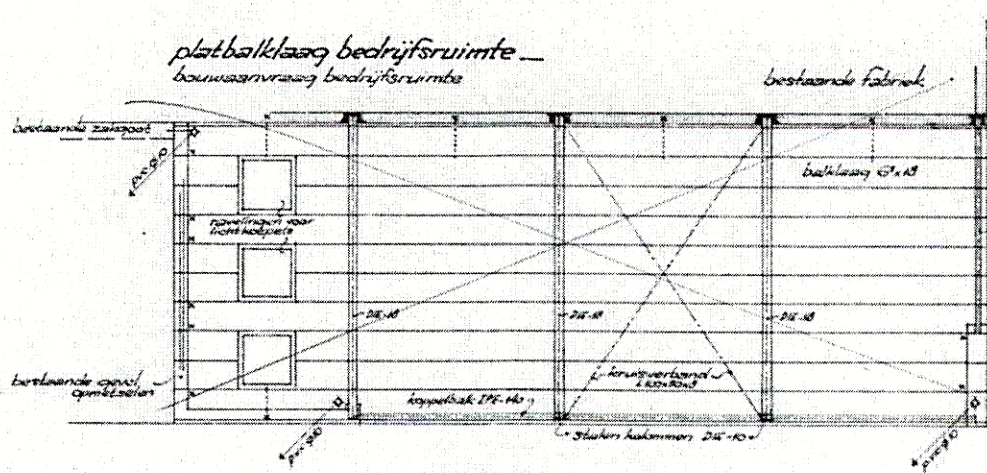 platbalklaag bedrijfsruimte
bouwaanvraag bedrijfsruimte
bestaande fabriek
bestaande zakgoot
pvc ø10
balklaag 6³x18
ravelingen voor
lichtkoepels
DIE-18
DIE-18
DIE-18
bestaande gevel
opmetselen
kruisverband
koppelbalk IPE-140
stalen kolommen DIE-10
pvc ø10
pvc ø10